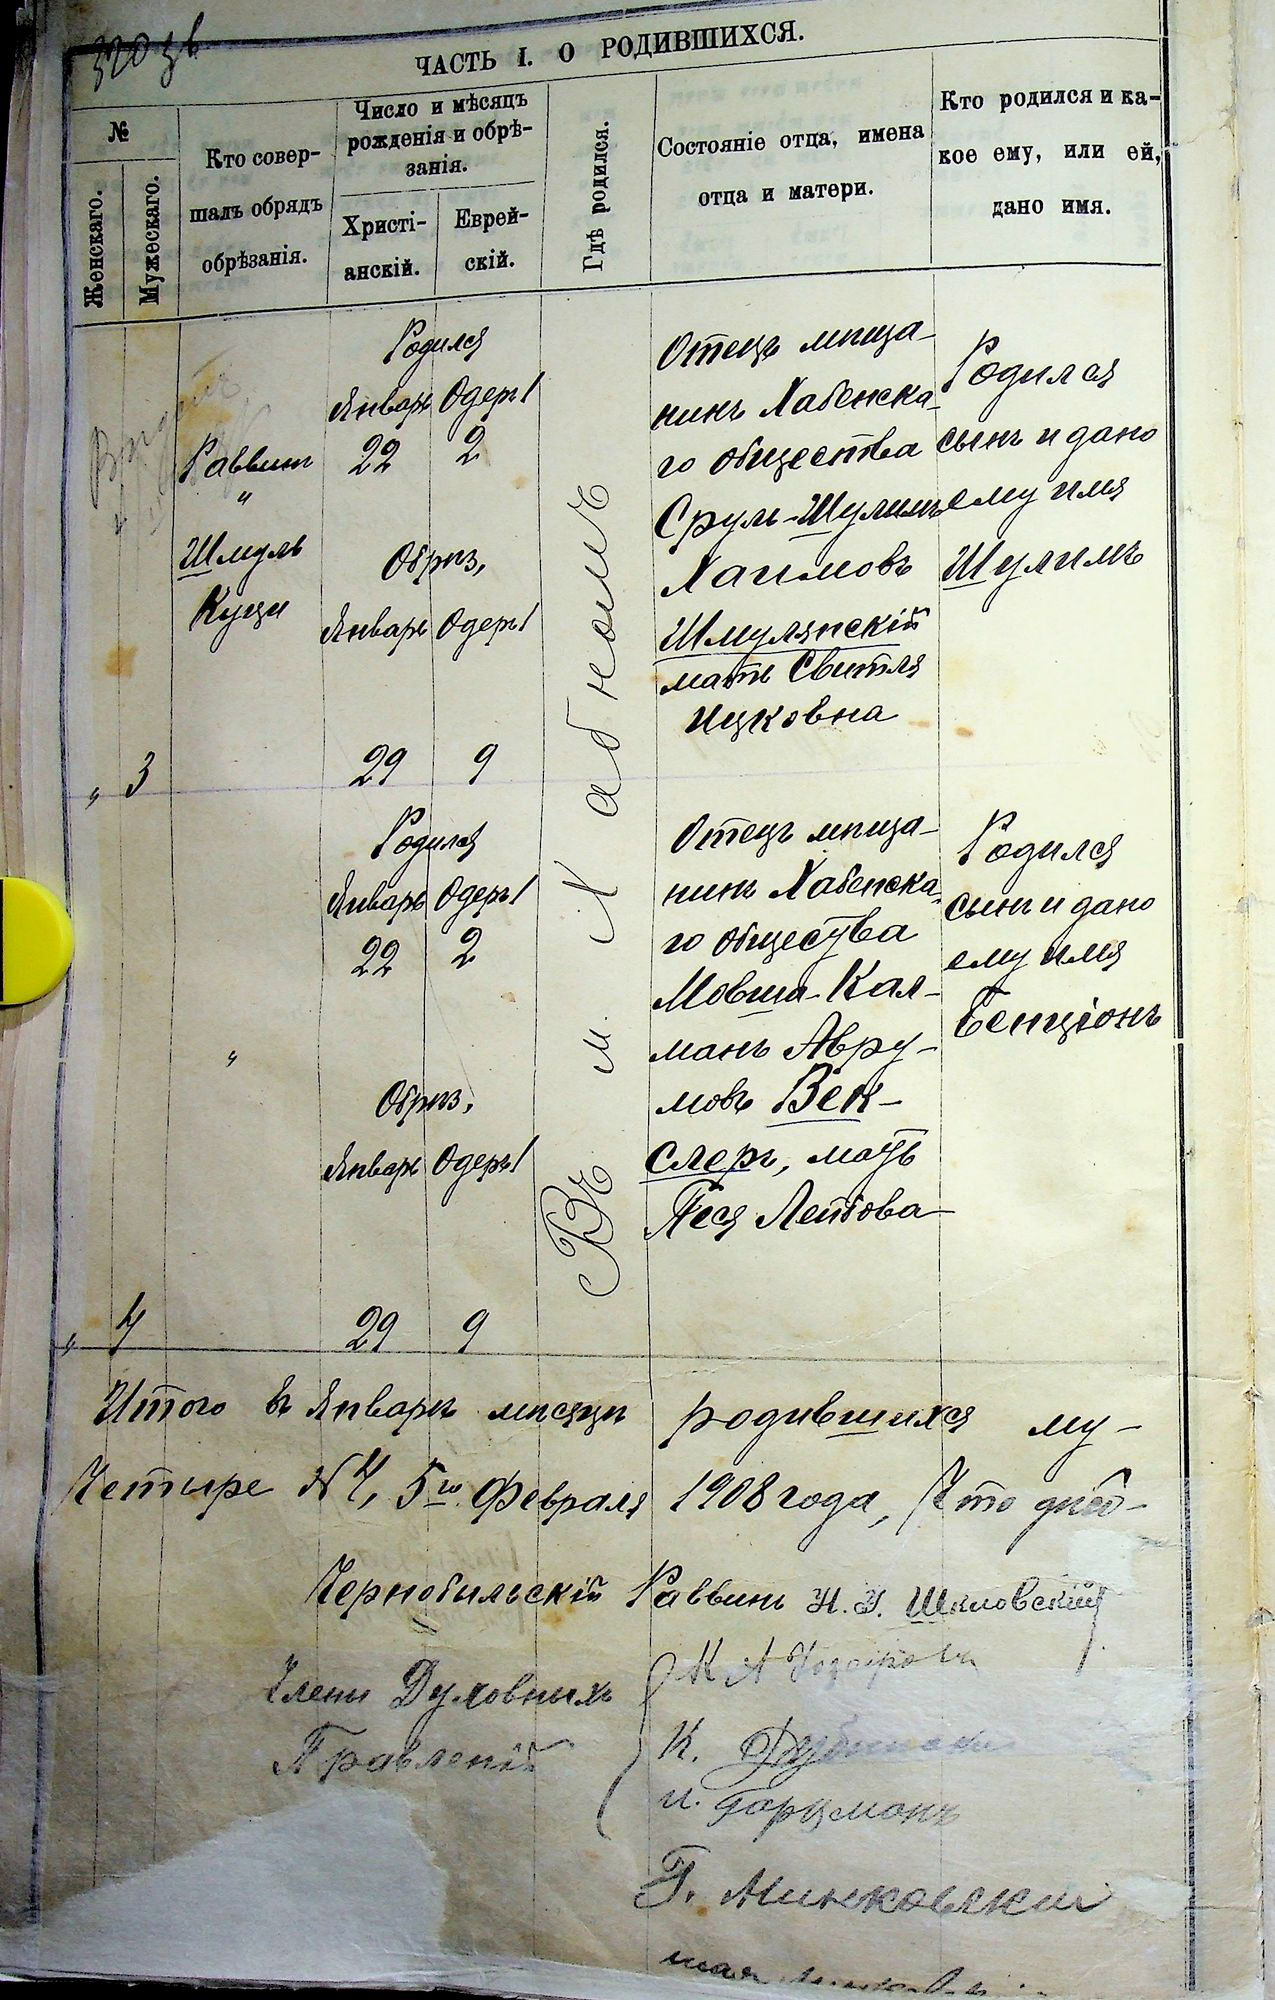 320 зв
ЧАСТЬ I. О РОДИВШИХСЯ.
№
Женскаго.
Мужескаго.
Кто совер-
шалъ обрядъ
обрѣзанія.
Число и мѣсяцъ
рожденія и обрѣ-
занія.
Христі-
анскій.
Еврей-
скій.
Гдѣ родился.
Состояніе отца, имена
отца и матери.
Кто родился и ка-
кое ему, или ей,
дано имя.
„ 3
Раввин
„
Шмуль
Куци
Родился
Январь Одеръ I
22 2
Обрѣз.
Январь Одеръ I
29 9
Въ м. Хабномъ
Отецъ мѣща-
нинъ Хабенска-
го общества
Сруль-Шулимъ
Хаимовъ
Шмулянскій
мать Свитля
Ицковна
Родился
сынъ и дано
ему имя
Шулимъ
„ 4
„
Родился
Январь Одеръ I
22 2
Обрѣз.
Январь Одеръ I
29 9
Отецъ мѣща-
нинъ Хабенска-
го общества
Мовша-Кал-
манъ Авру-
мовъ Век-
слеръ, мать
Песя Лейбова-
Родился
сынъ и дано
ему имя
Бенціонъ
Итого въ Январѣ мѣсяцѣ родившихся му-
Четыре № 4, 5го Февраля 1908 года, Что дѣй-
Чернобыльскій Раввинъ Н. У. Шкловскій
Члены Духовныхъ
Правленій
К. Дубински
И. Горцманъ
Г. Минковский